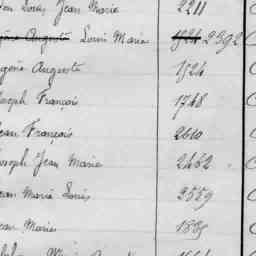 Louis Jean Marie 2211
Auguste Louis Marie 1524 2392
Auguste 1524
Joseph François 1748
Jean François 2610
Joseph Jean Marie 2452
Jean Marie Louis 2559
Jean Marie 1835